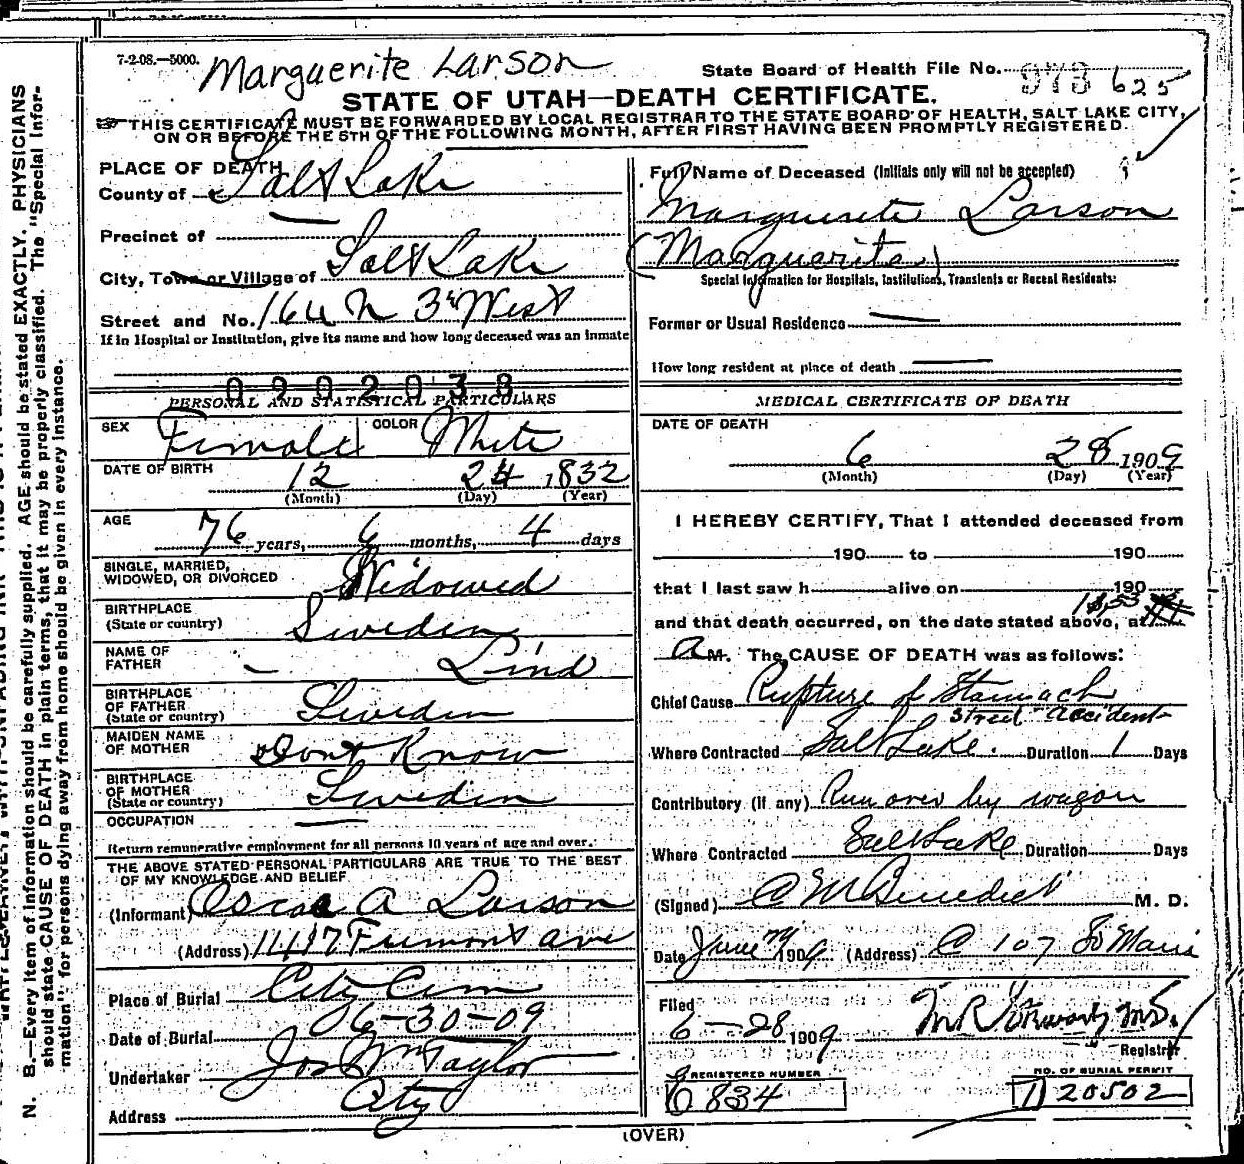 7-2-08.—5000. Marguerite Larson
State Board of Health File No. 973 625
STATE OF UTAH—DEATH CERTIFICATE.
THIS CERTIFICATE MUST BE FORWARDED BY LOCAL REGISTRAR TO THE STATE BOARD OF HEALTH, SALT LAKE CITY,
ON OR BEFORE THE 5TH OF THE FOLLOWING MONTH, AFTER FIRST HAVING BEEN PROMPTLY REGISTERED.
PLACE OF DEATH
County of Salt Lake
Precinct of —
City, Town or Village of Salt Lake
Street and No. 164 N 3d West
If in Hospital or Institution, give its name and how long deceased was an inmate
0902038
PERSONAL AND STATISTICAL PARTICULARS
SEX Female COLOR White
DATE OF BIRTH 12 24 1832
(Month) (Day) (Year)
AGE 76 years, 6 months, 4 days
SINGLE, MARRIED,
WIDOWED, OR DIVORCED Widowed
BIRTHPLACE
(State or country) Sweden
NAME OF
FATHER — Lind
BIRTHPLACE
OF FATHER
(State or country) Sweden
MAIDEN NAME
OF MOTHER Dont Know
BIRTHPLACE
OF MOTHER
(State or country) Sweden
OCCUPATION —
Return remunerative employment for all persons 10 years of age and over.
THE ABOVE STATED PERSONAL PARTICULARS ARE TRUE TO THE BEST
OF MY KNOWLEDGE AND BELIEF
(Informant) Oscar A Larson
(Address) Fremont ave
Place of Burial City Cem
Date of Burial 06-30-09
Undertaker Jos Wm Taylor
Address City
Full Name of Deceased (Initials only will not be accepted)
Marguerite Larson
(Marguerita)
Special Information for Hospitals, Institutions, Transients or Recent Residents:
Former or Usual Residence —
How long resident at place of death —
MEDICAL CERTIFICATE OF DEATH
DATE OF DEATH
6 28 1909
(Month) (Day) (Year)
I HEREBY CERTIFY, That I attended deceased from
190 to 190
that I last saw h alive on 190
and that death occurred, on the date stated above, at
A M. The CAUSE OF DEATH was as follows:
Chief Cause Rupture of Stomach
Street accident
Where Contracted Salt Lake. Duration 1 Days
Contributory (If any) Run over by wagon
Where Contracted Salt Lake Duration Days
(Signed) C M Benedict M. D.
Date June 1909 (Address) 107 So Main
Filed
6-28 1909
Registrar
REGISTERED NUMBER
6834
NO. OF BURIAL PERMIT
20502
(OVER)
N. B.—Every item of information should be carefully supplied. AGE should be stated EXACTLY. PHYSICIANS
should state CAUSE OF DEATH in plain terms, that it may be properly classified. The "Special Infor-
mation" for persons dying away from home should be given in every instance.